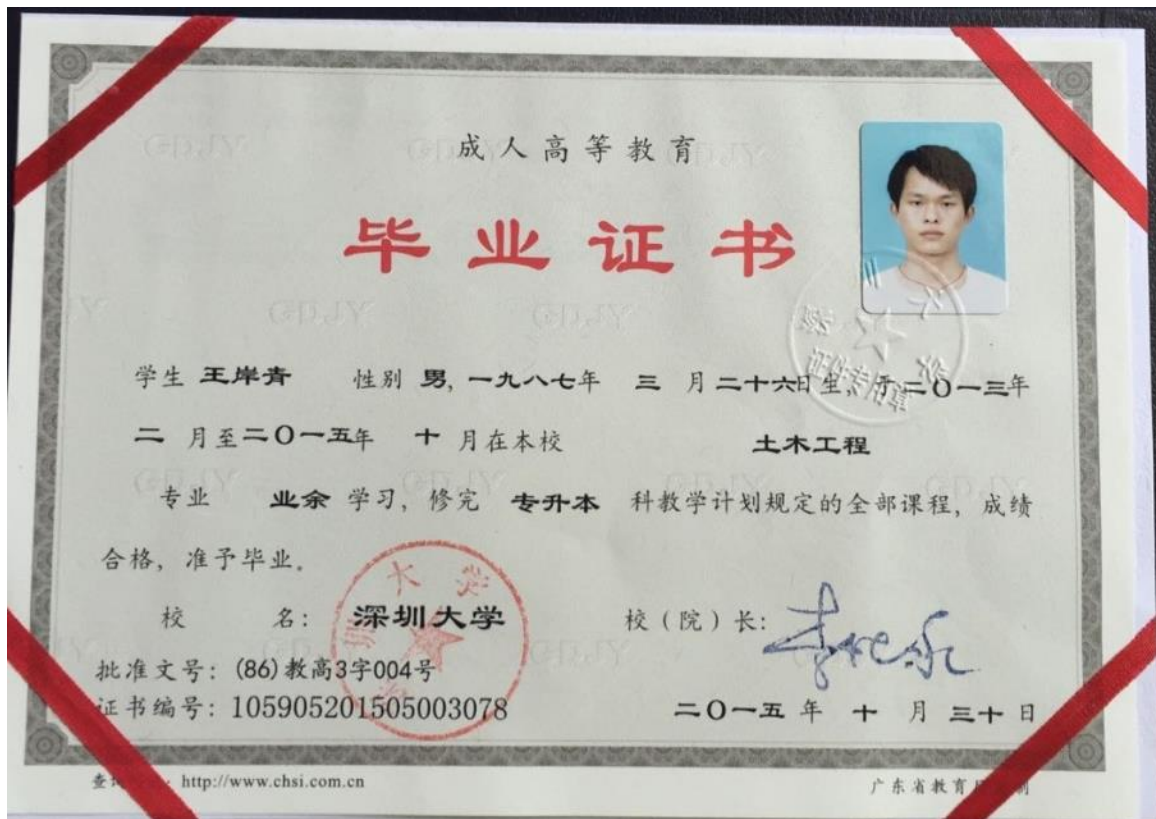 成人高等教育
毕业证书
学生 王岸青 性别 男, 一九八七年 三 月二十六日生, 于二〇一三年
二 月至二〇一五年 十 月在本校 土木工程
专业 业余 学习, 修完 专升本 科教学计划规定的全部课程, 成绩
合格, 准予毕业.
校 名: 深圳大学 校(院)长:
批准文号: (86)教高3字004号
证书编号: 105905201505003078 二〇一五 年 十 月 三十 日
http://www.chsi.com.cn 广东省教育
深圳大学
证件专用章
深圳大学
GDJY